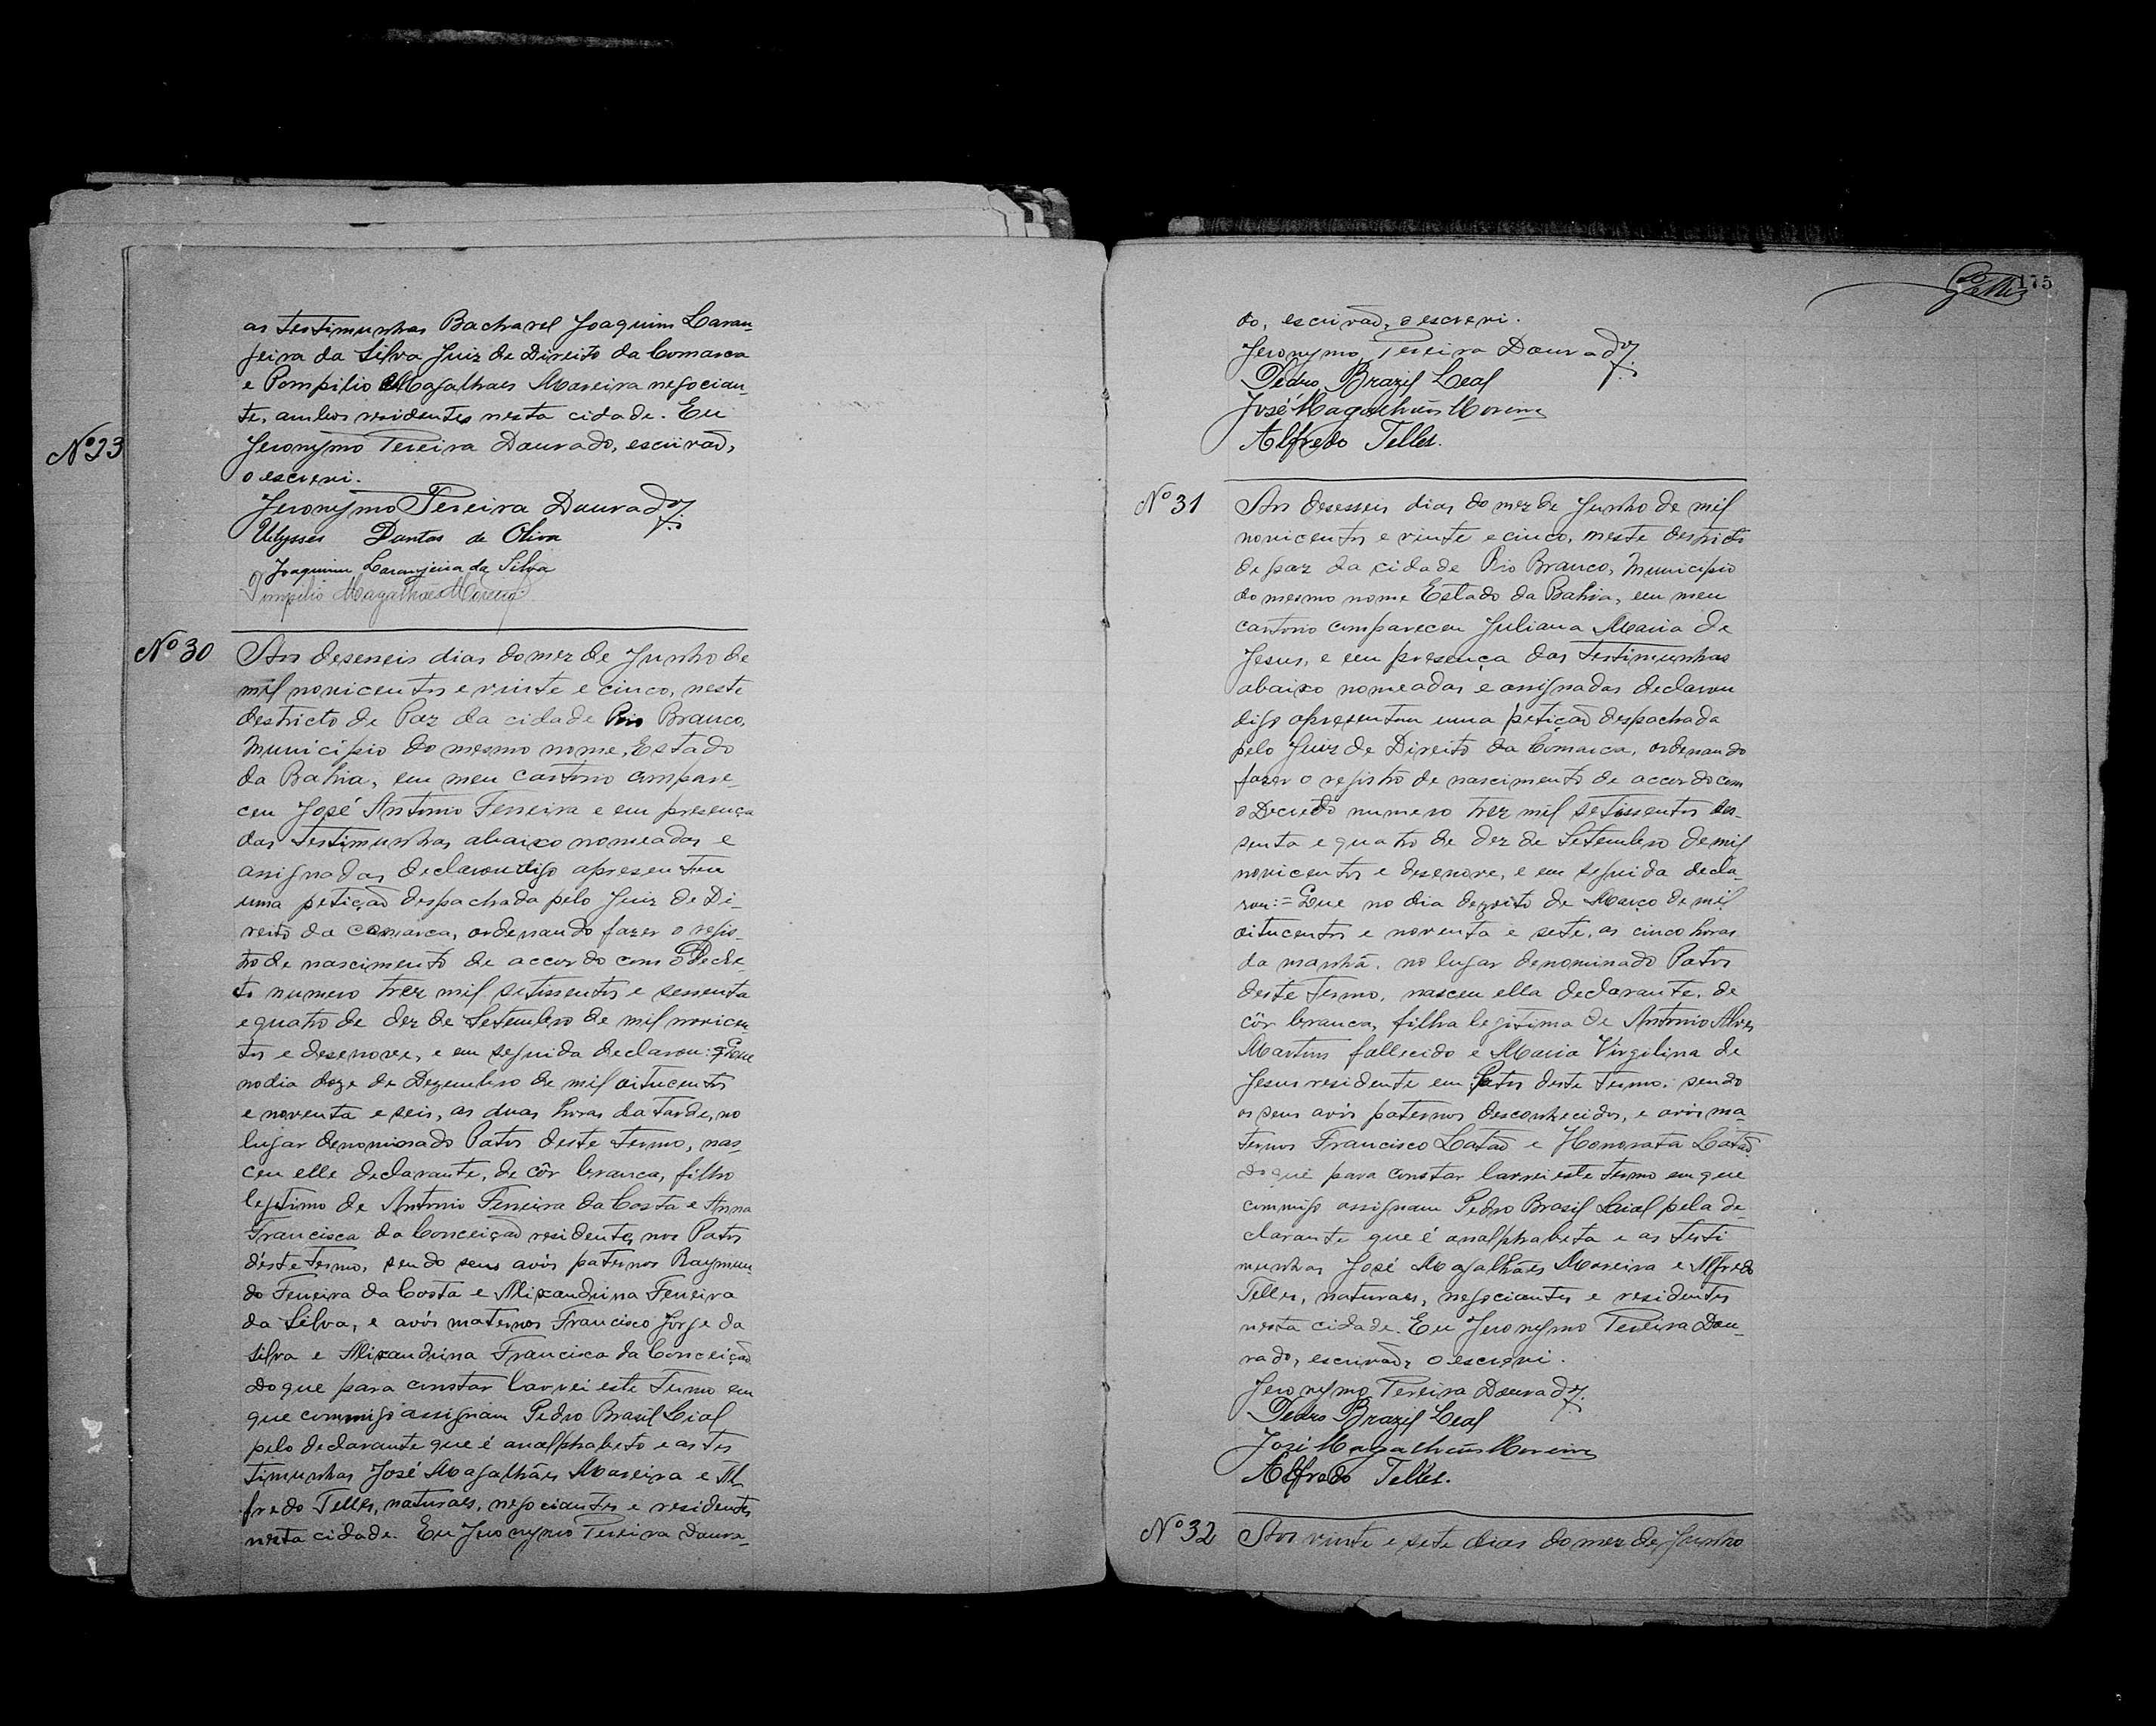 as testimunhas Bacharel Joaquim Laran-
jeira da Silva Juiz de Direito da Comarca
e Pompilio Magalhaes Moreira negocian-
te, ambos residentes nesta cidade. Eu
Jeronymo Pereira Dourado, escrivão,
o escrevi.
Jeronymo Pereira Dourado
Ulysses Dantas de Oliva
Joaquim Laranjeira da Silva
Pompilio Magalhães Moreira
Nº 23
Nº 30
Aos deseseis dias do mez de Junho de
mil novicentos e vinte e cinco, neste
destricto de Paz da cidade Rio Branco,
Municipio do mesmo nome, Estado
da Bahia, em meu cartorio compare-
ceu José Antonio Ferreira e em presença
das testimunhas abaixo nomeadas e
assignadas declarou digo apresentou
uma petição despachada pelo Juiz de Di-
reito da Comarca, ordenando fazer o regis-
tro de nascimento de accordo com o Decre-
to numero trez mil setissentos e sessenta
e quatro de dez de Setembro de mil novicen-
tos e desenove, e em seguida declarou: Que
no dia doze de Dezembro de mil oitucentos
e noventa e seis, as duas horas da tarde, no
lugar denominado Patos deste termo, nas-
ceu elle declarante, de côr branca, filho
legitimo de Antonio Ferreira da Costa e Anna
Francisca da Conceição residentes nos Patos
déste termo, sendo seus avós paternos Raymun-
do Ferreira da Costa e Alixandrina Ferreira
da Silva, e avós maternos Francisco Jorge da
Silva e Alixandrina Francisca da Conceição
do que para constar lavrei este termo em
que commigo assignam Pedro Brasil Lial
pelo declarante que é analphabeto e as tes
timunhas José Magalhães Moreira e Al
fredo Telles, naturaes, negociantes e residentes
nesta cidade. Eu Jeronymo Pereira Doura-
175
do, escrivão, o escrevi.
Jeronymo Pereira Dourado
Pedro Brazil Leal
José Magalhães Moreira
Alfredo Telles.
Nº 31
Aos desesseis dias do mez de Junho de mil
novicentos e vinte e cinco, neste destricto
de paz da cidade Rio Branco, Municipio
do mesmo nome Estado da Bahia, em meu
cartorio compareceu Juliana Maria de
Jesus, e em presença das testimunhas
abaixo nomeadas e assignadas declarou
digo apresentou uma petição despachada
pelo Juiz de Direito da Comarca, ordenando
fazer o registro de nascimento de accordo com
o Decreto numero trez mil setissentos ses-
senta e quatro de dez de Setembro de mil
novicentos e desenove, e em seguida decla-
rou: = Que no dia dezoito de Março de mil
oitucentos e noventa e sete, as cinco horas
da manhã, no lugar denominado Patos
deste termo, nasceu ella declarante, de
côr branca, filha legitima de Antonio Alves
Martins fallecido e Maria Virgilina de
Jesus residente em Patos deste termo, sendo
os seus avós paternos desconhecidos, e avós ma
ternos Francisco Latão e Honorata Latão
do que para constar lavrei este termo em que
commigo assignam Pedro Brasil Leial pela de-
clarante que é analphabeta e as testi
munhas José Magalhães Moreira e Alfredo
Telles, naturaes, negociantes e residentes
nesta cidade. Eu Jeronymo Pereira Dou-
rado, escrivão, o escrevi.
Jeronymo Pereira Dourado
Pedro Brazil Leal
José Magalhães Moreira
Alfredo Telles.
Nº 32
Aos vinte e sete dias do mez de Junho